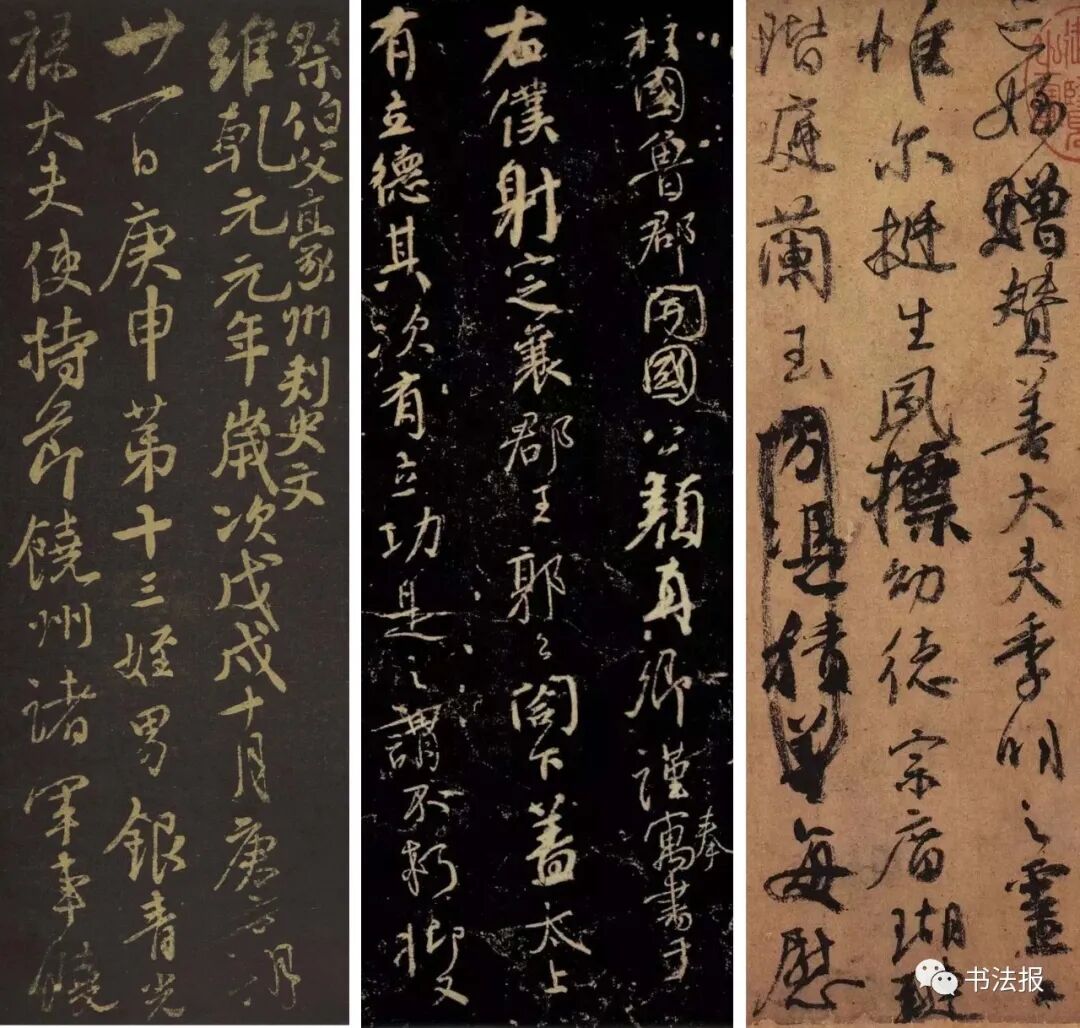 祭伯父豪州刺史文
維乾元元年歲次戊戌十月庚寅朔
廿一日庚申第十三姪男銀青光
祿大夫使持節饒州諸軍事饒
柱國魯郡開國公顏真卿謹奉寓書于
右僕射定襄郡王郭公閣下蓋太上
有立德其次有立功是之謂不朽抑又
亡姪贈贊善大夫季明之靈曰
惟尔挺生夙標幼德宗廟瑚璉
階庭蘭玉每慰
书法报